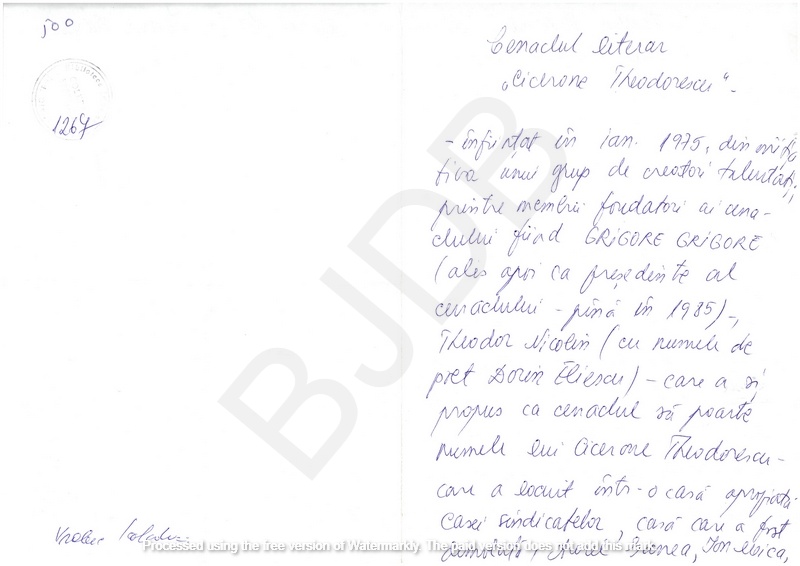 500
1267
Cenaclul literar
„Cicerone Theodorescu“.
- înființat în ian. 1975, din iniția-
tiva unui grup de creatori talentați,
printre membrii fondatori ai cena-
clului fiind GRIGORE GRIGORE
(ales apoi ca președinte al
cenaclului - pînă în 1985)-,
Theodor Nicolin (cu numele de
poet Dorin Eliescu) - care a și
propus ca cenaclul să poarte
numele lui Cicerone Theodorescu -
care a locuit într-o casă apropiată
Casei sindicatelor, casă care a fost
Processed using the free version of Watermarkly. The paid version does not add this mark.
BJDB